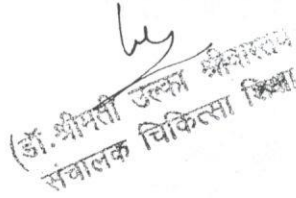 (डॉ.श्रीमती उल्का श्रीवास्तव
संचालक चिकित्सा शिक्षा